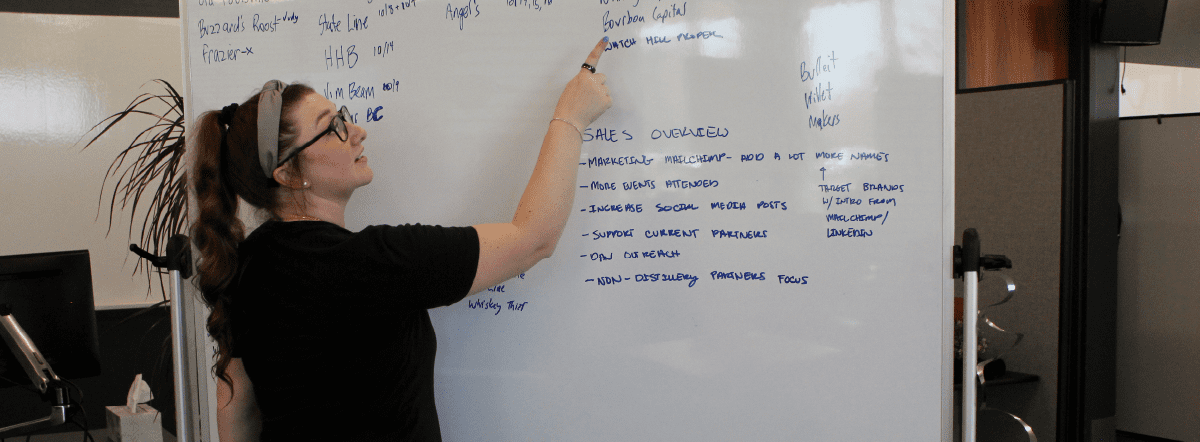 Buzzard's Roost
Frazier-x
State Line 10/8+10/9
HHB 10/14
Jim Beam
BC
Angel's
Bourbon Capital
WATCH HILL PROPER
Bulleit
Willet
Makers
SALES OVERVIEW
- MARKETING MAILCHIMP - ADD A LOT MORE NAMES
- MORE EVENTS ATTENDED
- INCREASE SOCIAL MEDIA POSTS
- SUPPORT CURRENT PARTNERS
- OUTREACH
- NON-DISTILLERY PARTNERS FOCUS
↑
TARGET BRANDS
W/ INTRO FROM
MAILCHIMP/
LINKEDIN
Whiskey Thief